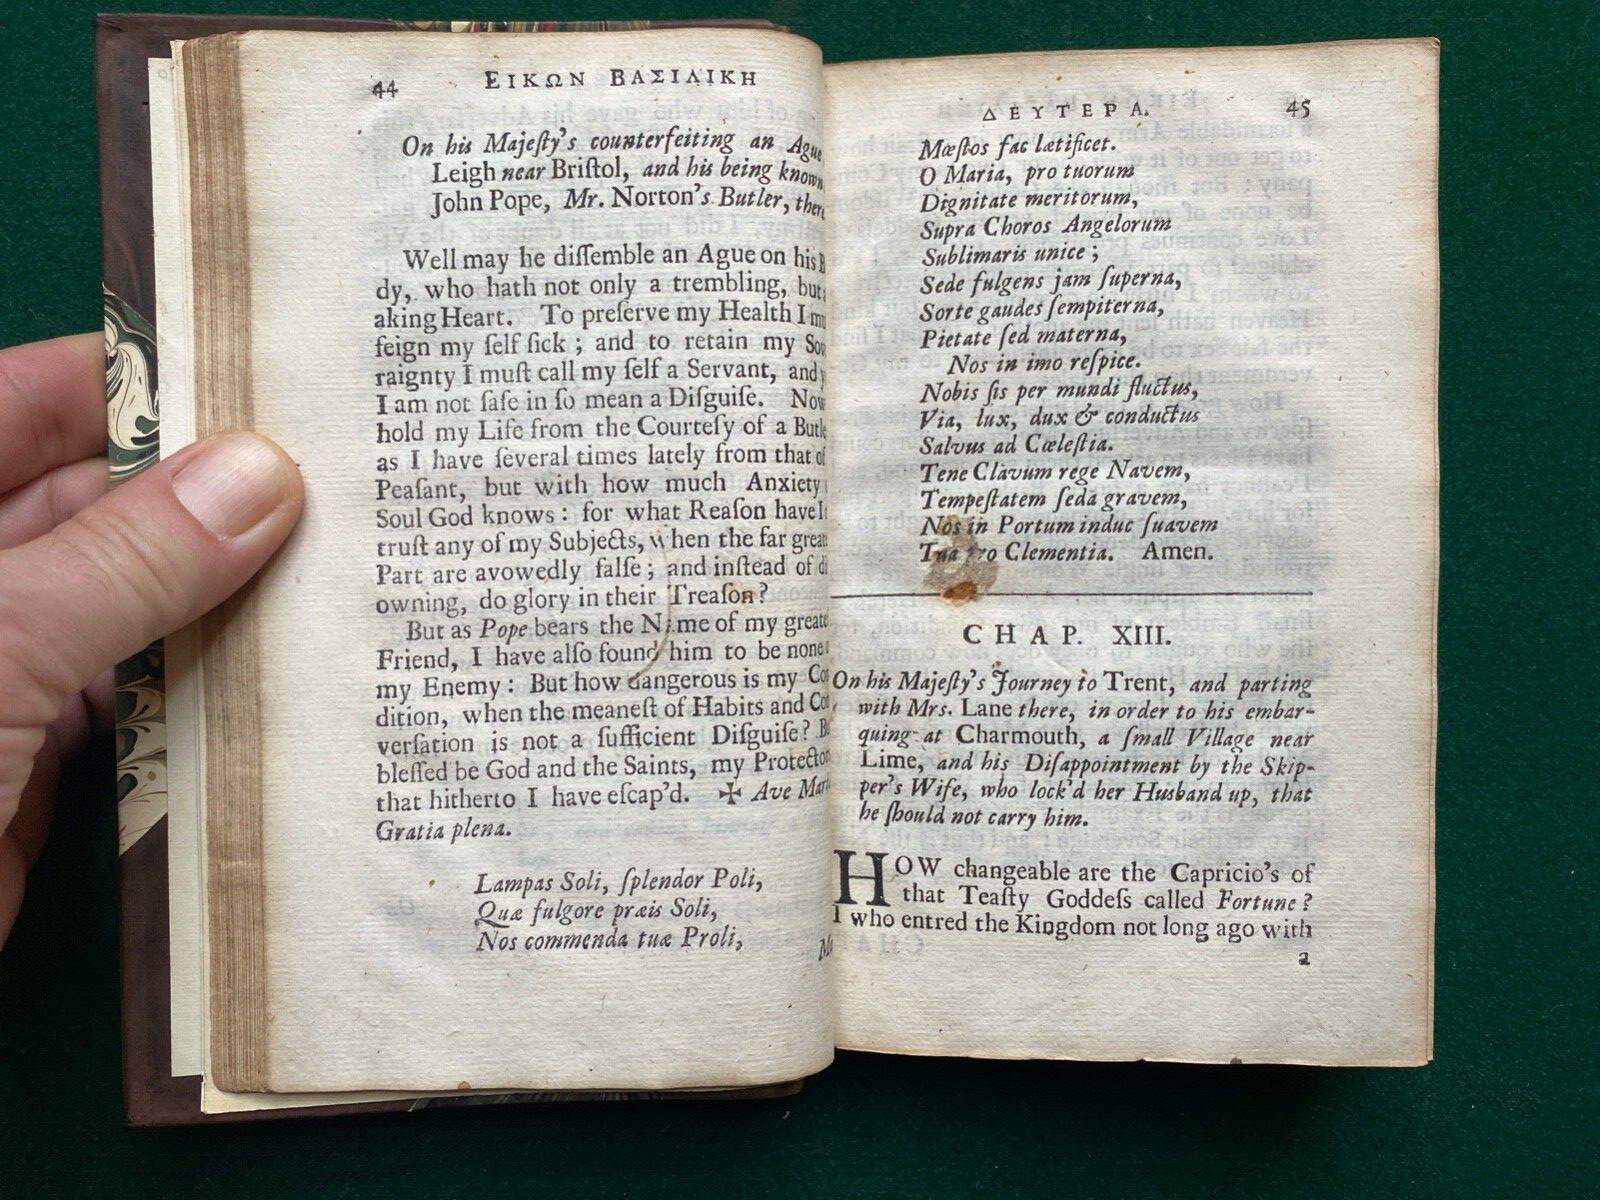 44 ΕΙΚΩΝ ΒΑΣΙΛΙΚΗ
On his Majeſty's counterfeiting an Ague
Leigh near Briſtol, and his being known
John Pope, Mr. Norton's Butler, there
Well may he diſſemble an Ague on his B
dy, who hath not only a trembling, but
aking Heart. To preſerve my Health I mu
feign my ſelf ſick ; and to retain my Sov
raignty I muſt call my ſelf a Servant, and y
I am not ſafe in ſo mean a Diſguiſe. Now
hold my Life from the Courteſy of a Butle
as I have ſeveral times lately from that of
Peaſant, but with how much Anxiety
Soul God knows : for what Reaſon have I
truſt any of my Subjects, when the far great
Part are avowedly falſe ; and inſtead of di
owning, do glory in their Treaſon ?
But as Pope bears the Name of my greate
Friend, I have alſo found him to be none
my Enemy : But how dangerous is my Co
dition, when the meaneſt of Habits and Con
verſation is not a ſufficient Diſguiſe ? B
bleſſed be God and the Saints, my Protector
that hitherto I have eſcap'd. ✠ Ave Mari
Gratia plena.
Lampas Soli, ſplendor Poli,
Quæ fulgore præis Soli,
Nos commenda tuæ Proli,
ΔΕΥΤΕΡΑ. 45
Mœſtos fac lætificet.
O Maria, pro tuorum
Dignitate meritorum,
Supra Choros Angelorum
Sublimaris unice ;
Sede fulgens jam ſuperna,
Sorte gaudes ſempiterna,
Pietate ſed materna,
Nos in imo reſpice.
Nobis ſis per mundi fluctus,
Via, lux, dux & conductus
Salvus ad Cœleſtia.
Tene Clavum rege Navem,
Tempeſtatem ſeda gravem,
Nos in Portum induc ſuavem
Tua pro Clementia. Amen.
CHAP. XIII.
On his Majeſty's Journey to Trent, and parting
with Mrs. Lane there, in order to his embar-
quing at Charmouth, a ſmall Village near
Lime, and his Diſappointment by the Skip-
per's Wife, who lock'd her Husband up, that
he ſhould not carry him.
HOW changeable are the Capricio's of
that Teaſty Goddeſs called Fortune ?
I who entred the Kingdom not long ago with
a